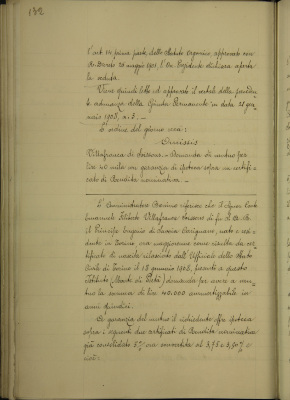 132
l'art. 14 prima parte, dello Statuto organico, approvato con
R. Decreto 25 maggio 1901, l'On. Presidente dichiara aperta
la seduta.
Viene quindi letto ed approvato il verbale della precedente
adunanza della Giunta Permanente in data 15 gen
naio 1908, n. 3. —
L'ordine del giorno reca:
Omissis
Villafranca di Soissons - Domanda di mutuo per
lire 40 mila con garanzia di ipoteca sopra un certifi-
cato di Rendita nominativa. —
Il Comminicatore riferisce che il Signor Conte
Emanuele Filiberto Villafranca Soissons di fu S. A. R.
il Principe Eugenio di Savoia Carignano, nato e resi-
dente in Torino, ora maggiorenne come risulta da cer-
tificato di nascita rilasciato dall'Ufficiale dello Stato
Civile di Torino il 18 gennaio 1908, a questo
Istituto (Monte di Pietà) domanda per avere a mu-
tuo la somma di lire 40.000 ammortizzabile in
anni quindici.
A garanzia del mutuo il richiedente offre ipoteca
sopra i seguenti due certificati di Rendita nominativa
già consolidato 5% ora convertito al 3,75 e 3,50% e
cioè: